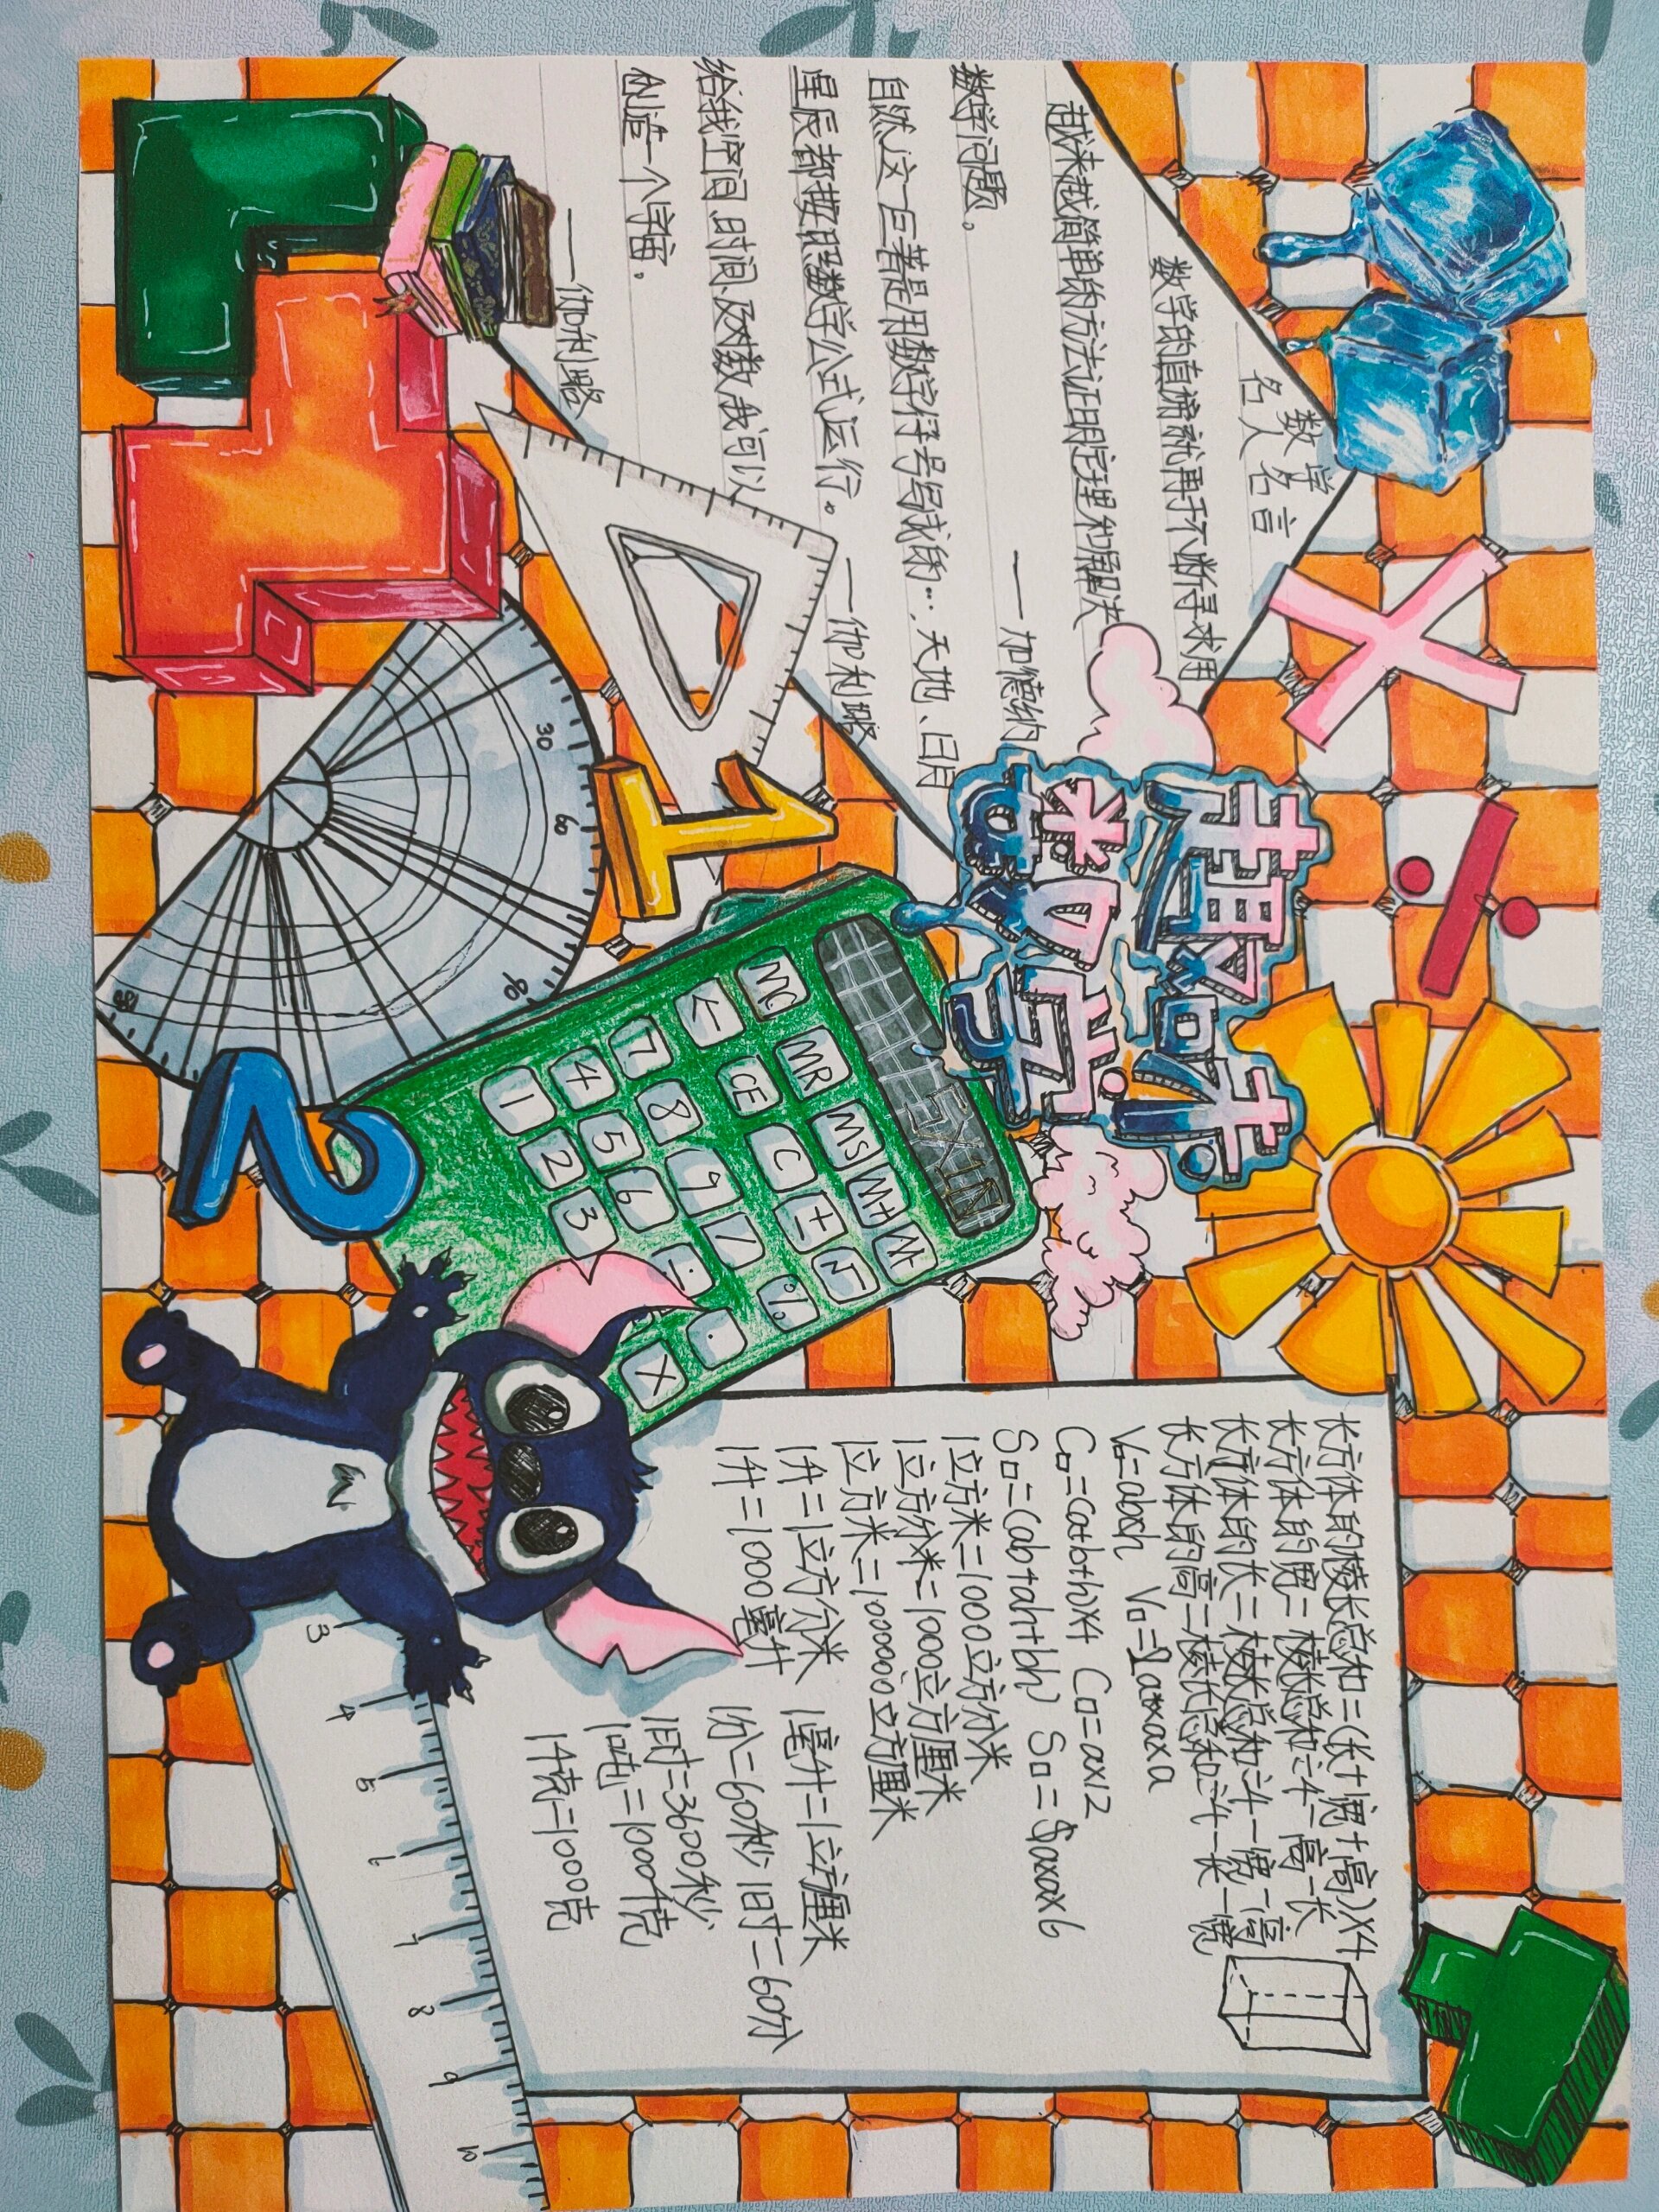 趣味
数学
数学
名人名言
数学的就用于不断寻求用
越来越简单的方法证明定理和解决
数学问题。
——加德纳
自然这一巨著是用数学符号写成的…天地、日月
星辰都按照数学公式运行。——伽利略
给我空间、时间、及对数,我可以
创造一个宇宙。
——伽利略
长方体的棱长总和=(长+宽+高)×4
长方体的宽=棱长总和÷4-高-长
长方体的长=棱长总和÷4-宽-高
长方体的高=棱长总和÷4-长-宽
V=abxh V=axaxa
C=(a+b+h)×4 C=ax12
S=(ab+ah+bh) S=axax6
1立方米=1000立方分米
1立方分米=1000立方厘米
1立方米=1000000立方厘米
1升=1立方分米 1毫升=1立方厘米
1升=1000毫升 1分=60秒 1时=60分
1时=3600秒
1吨=1000千克
1千克=1000克
30
60
90
1
2
MC MR MS M+ M
← CE C ± √
7 8 9 / %
4 5 6
1 2 3
×
3 4 5 6 7 8 9 10